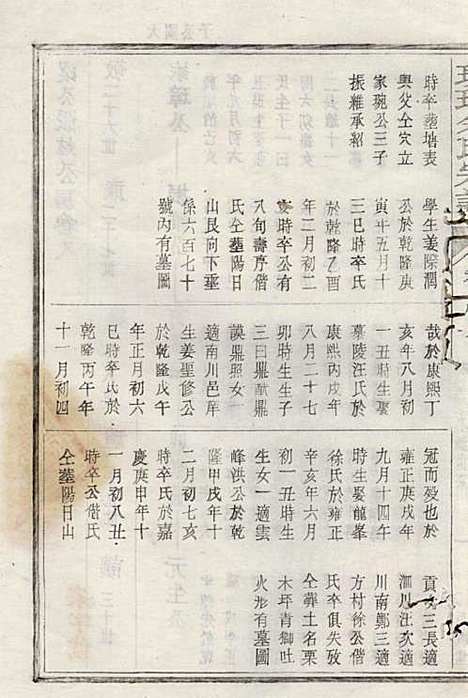 時卒墓墙表
與父仝穴立
家琬公三子
振維承紹
學生姜
公於乾隆庚
寅年五月十
三巳時卒氏
於乾隆乙酉
年二月初二
時卒公有
八旬壽序偕
氏仝塟陽日
山艮向下垂
係六百七十
號內有墓圖
哉於康熙丁
亥年八月初
一丑時生娶
墓陵汪氏於
康熙丙戌年
八月二十七
卯時生生子
三曰鼎猷鼎
謨鼎照女一
適南川邑庠
生姜聖修公
於乾隆戊午
年正月初六
巳時卒氏於
乾隆丙午年
十一月初四
冠而殁也於
雍正庚戌年
九月十四午
時生娶龍峯
徐氏於雍正
辛亥年六月
初一丑時生
生女一適雲
峰洪公於乾
隆甲戌年十
二月初七亥
時卒氏於嘉
慶庚申年十
一月初八丑
時卒公偕氏
仝塟陽日山
貢 三長適
泗川汪次適
川南鄭三適
方村徐公偕
氏卒俱失攷
仝葬土名栗
木坪青獅吐
火形有墓圖